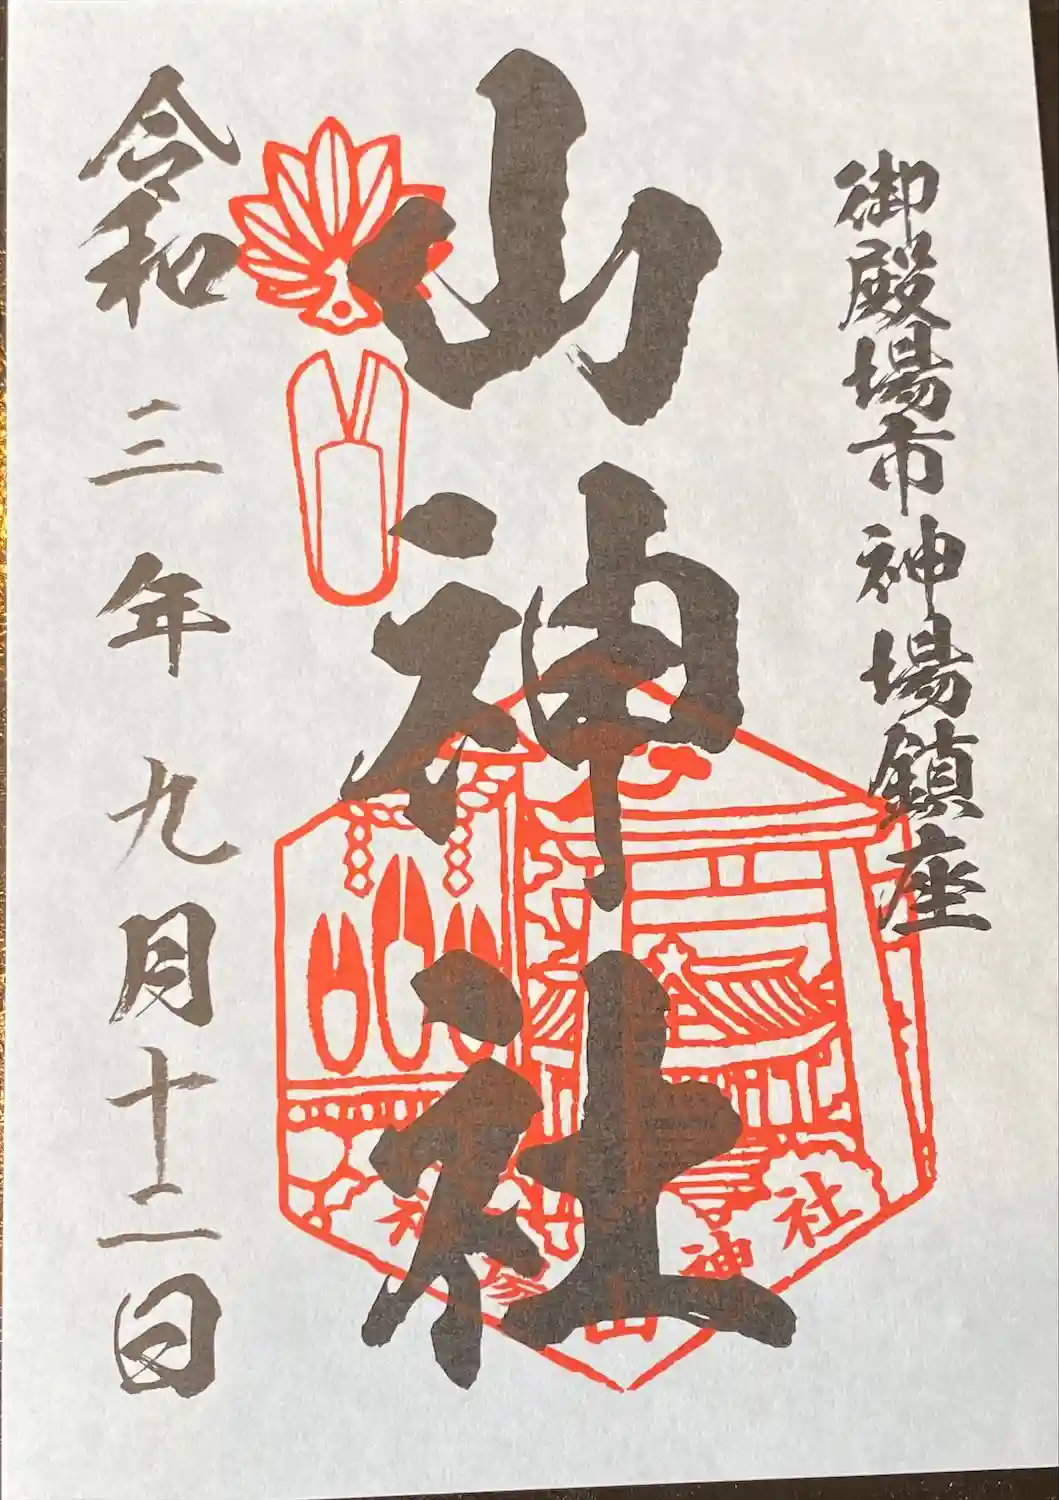 御殿場市神場鎮座
山神社
令和三年九月十二日
山神社